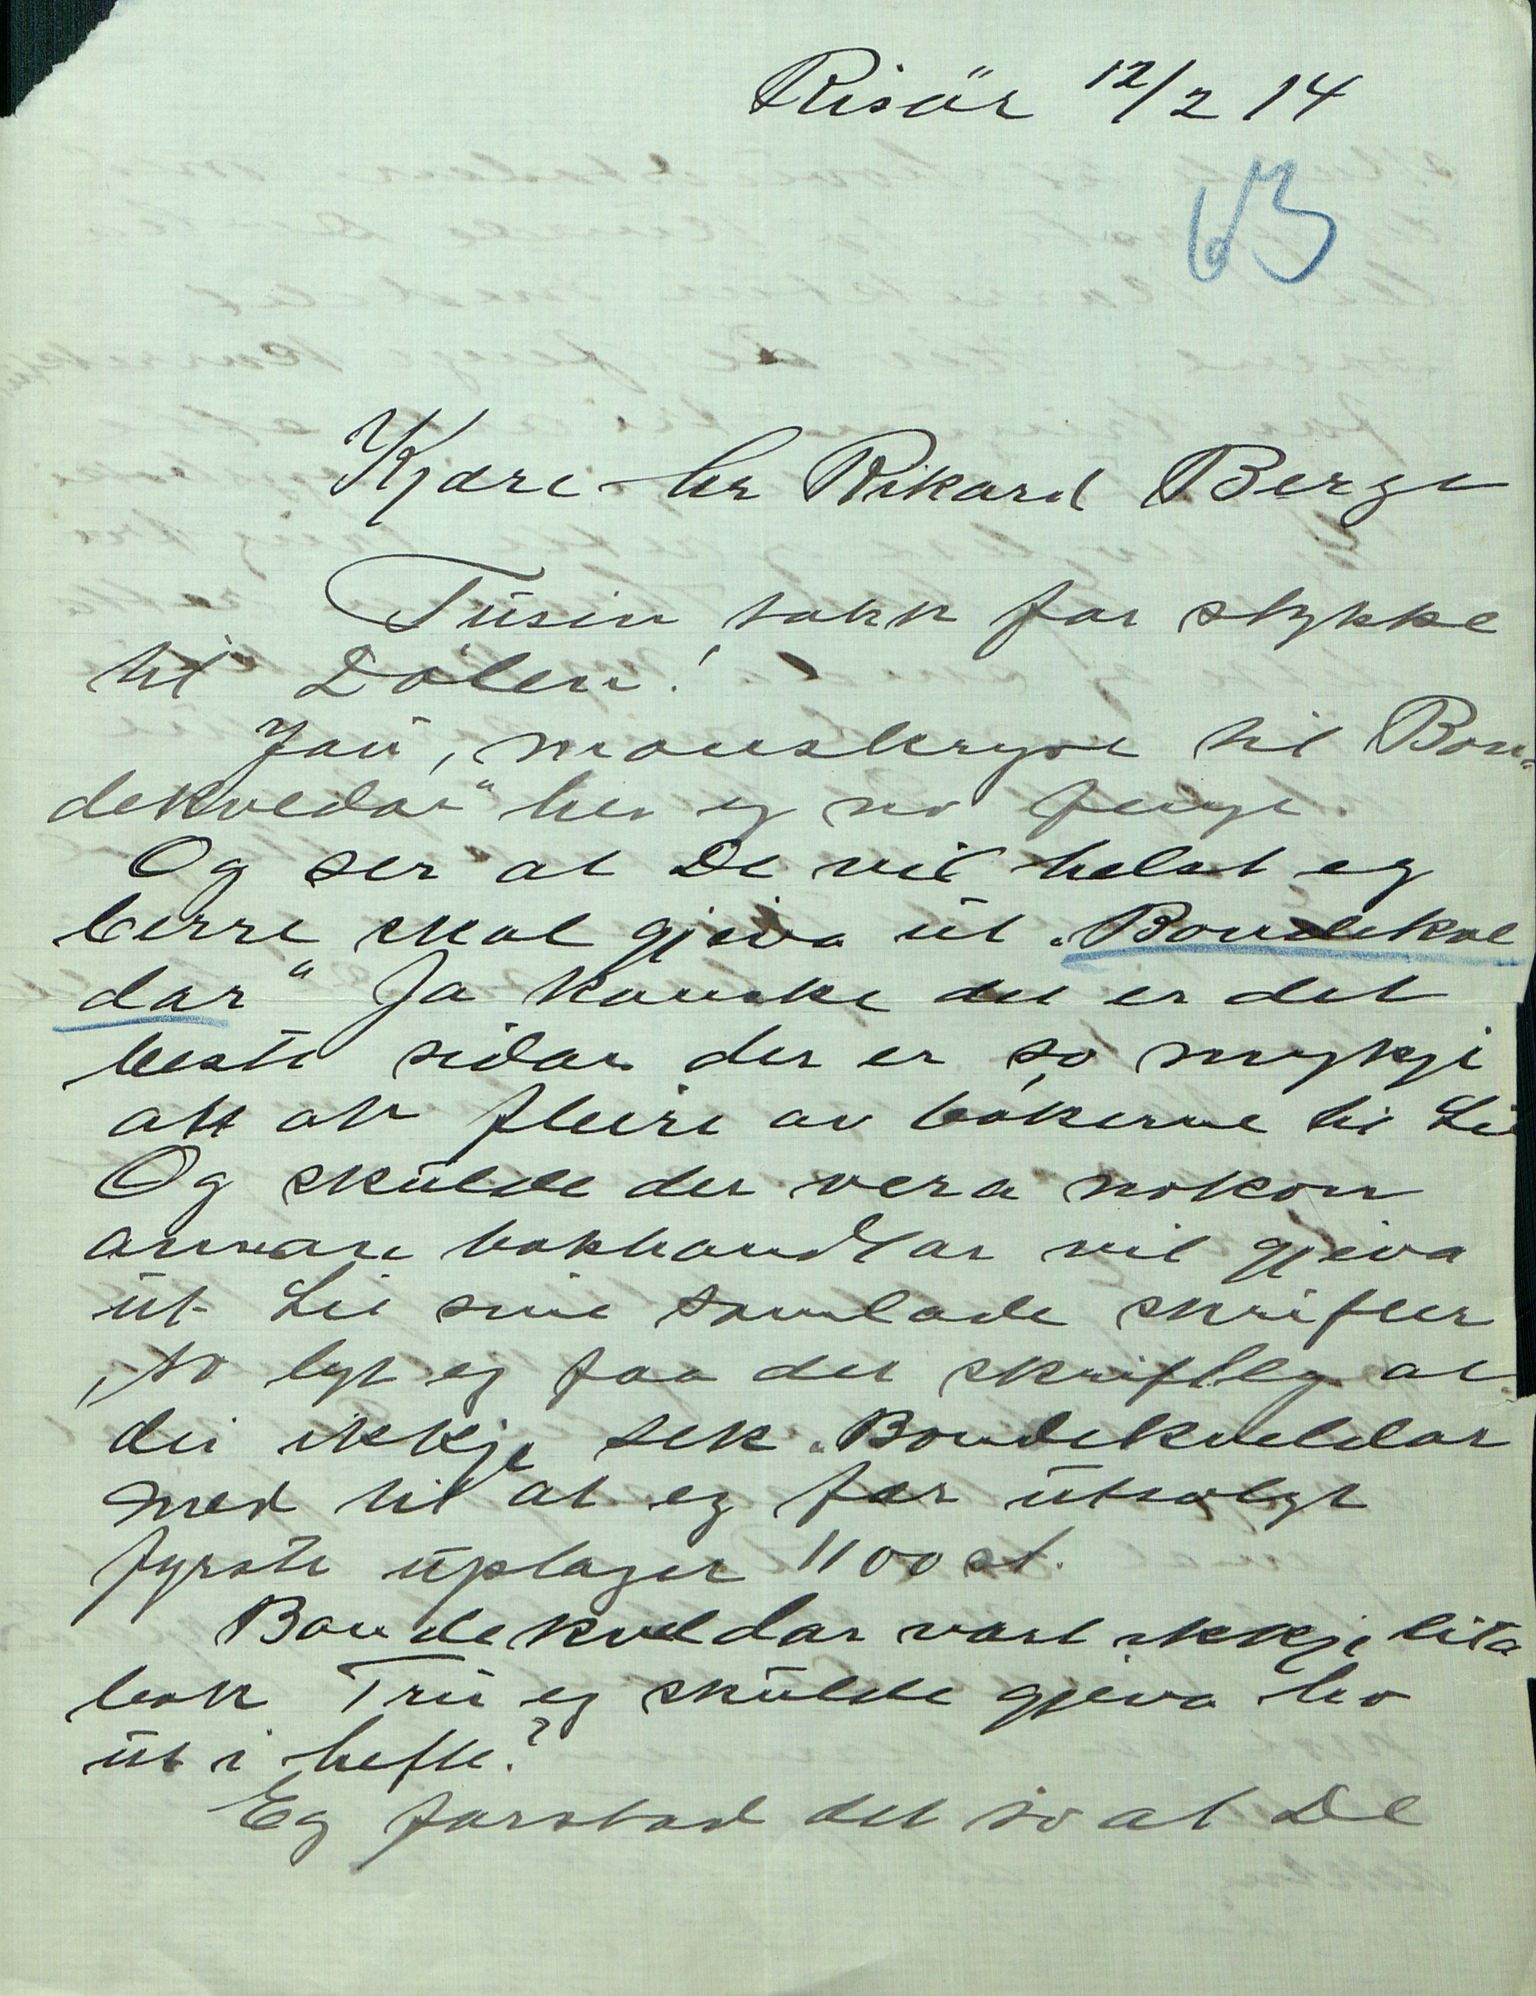 Risör 12/2 14
63
Kjære hr Rikard Berge
Tusin takk for stykke
til Dölen!
Jau, manuskryve til Bon-
dekveldar" hev eg no fenge.
Og ser at De vil helst eg
berre skal gjeva ut "Bondekve
dar" Ja kanske det er det
beste sidan der er so mykji
att av fleire av bökerne til Lie
Og skulde der vera nokon
annan bokhandlar vil gjeva
ut Lie sine samlade skrifter
so lyt eg faa det skriftleg at
dei ikkje tek "Bondekveldar
med til at eg fær utsolgt
fyrste uplaget 1100 st.
Bondekveldar vart ikkje lita
bok Tru eg skulde gjeva ho
ut i hefte?
Eg forstod det so at De